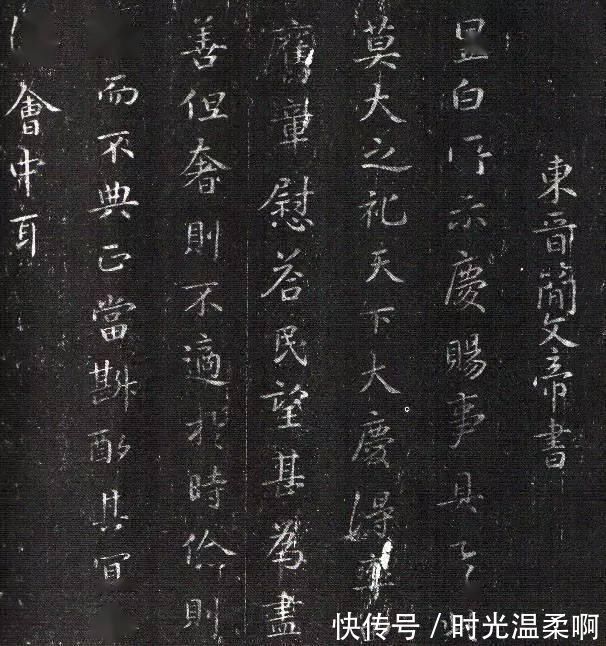 東晋簡文帝書
昱白所示慶賜事具之
莫大之祀天下大慶得率
舊章慰荅民望甚為盡
善但奢則不適於時儉則
而不典正當斟酌其宜
會中耳
快传号 / 时光温柔啊